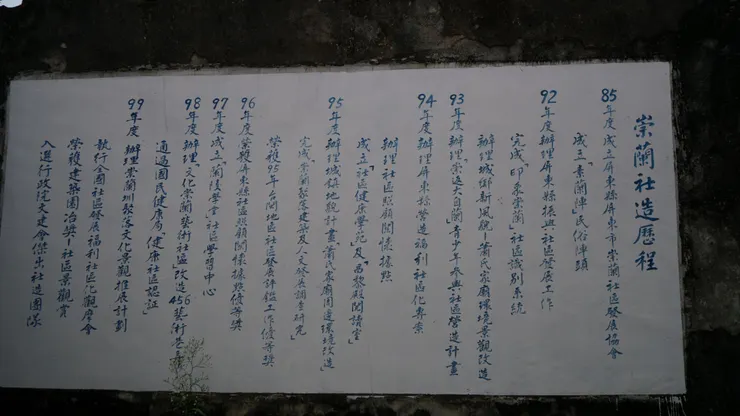 崇蘭社造歷程
85年度 成立屏東縣屏東市崇蘭社區發展協會
成立「素蘭陣」民俗陣頭
92年度 辦理屏東縣振興社區發展工作
完成「印象崇蘭」社區識別系統
辦理城鄉新風貌-蕭氏家廟環境景觀改造
93年度 辦理「崇造大自蘭」青少年參與社區營造計畫
94年度 辦理屏東縣營造福利社區化專案
辦理社區照顧關懷據點
成立「社區健康學苑」及「昌黎殿閱讀室」
95年度 辦理城鎮地貌計畫「蕭氏家廟周邊環境改造」
完成「崇蘭聚落建築及人文發展調查研究」
榮獲95年台閩地區社區發展評鑑工作優等獎
96年度 榮獲屏東縣社區照顧關懷據點優等獎
97年度 成立「蘭陵學堂」社區學習中心
98年度 辦理「文化崇蘭藝術社區」改造456藝術巷弄
通過國民健康局「健康社區認證」
99年度 辦理崇蘭圳聚落文化景觀推展計劃
執行全國社區發展福利社區化觀摩會
榮獲建築園冶獎-社區景觀賞
入選行政院文建會傑出社造團隊